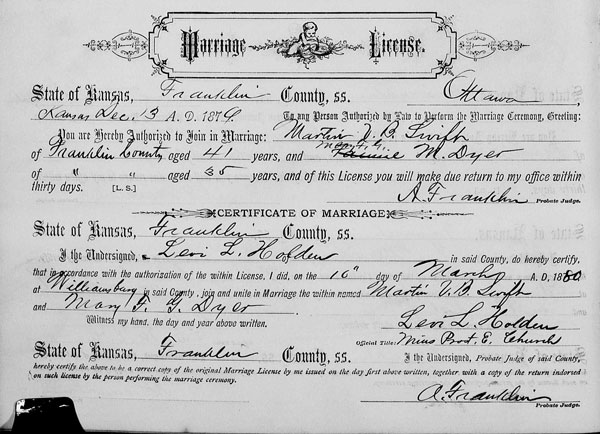 Marriage License.
State of Kansas, Franklin County, ss. Ottawa
Kansas Dec. 13 A. D. 1879. To any Person Authorized by Law to Perform the Marriage Ceremony, Greeting:
You are Hereby Authorized to Join in Marriage: Martin V. B. Swift
of Franklin County aged 41 years, and Mary F. G. M. Dyer
of " " aged 35 years, and of this License you will make due return to my office within
thirty days. [L. S.] A. Franklin
Probate Judge.
CERTIFICATE OF MARRIAGE
State of Kansas, Franklin County, ss.
I the Undersigned, Levi L. Holden in said County, do hereby certify,
that in accordance with the authorization of the within License, I did, on the 10" day of March A. D. 1880
at Williamsburg in said County, join and unite in Marriage the within named Martin V. B. Swift
and Mary F. G. Dyer
Witness my hand, the day and year above written. Levi L. Holden
Official Title: Mins Prot. E. Church
State of Kansas, Franklin County, ss. I the Undersigned, Probate Judge of said County,
hereby certify the above to be a correct copy of the original Marriage License by me issued on the day first above written, together with a copy of the return indorsed
on such license by the person performing the marriage ceremony.
A. Franklin
Probate Judge.